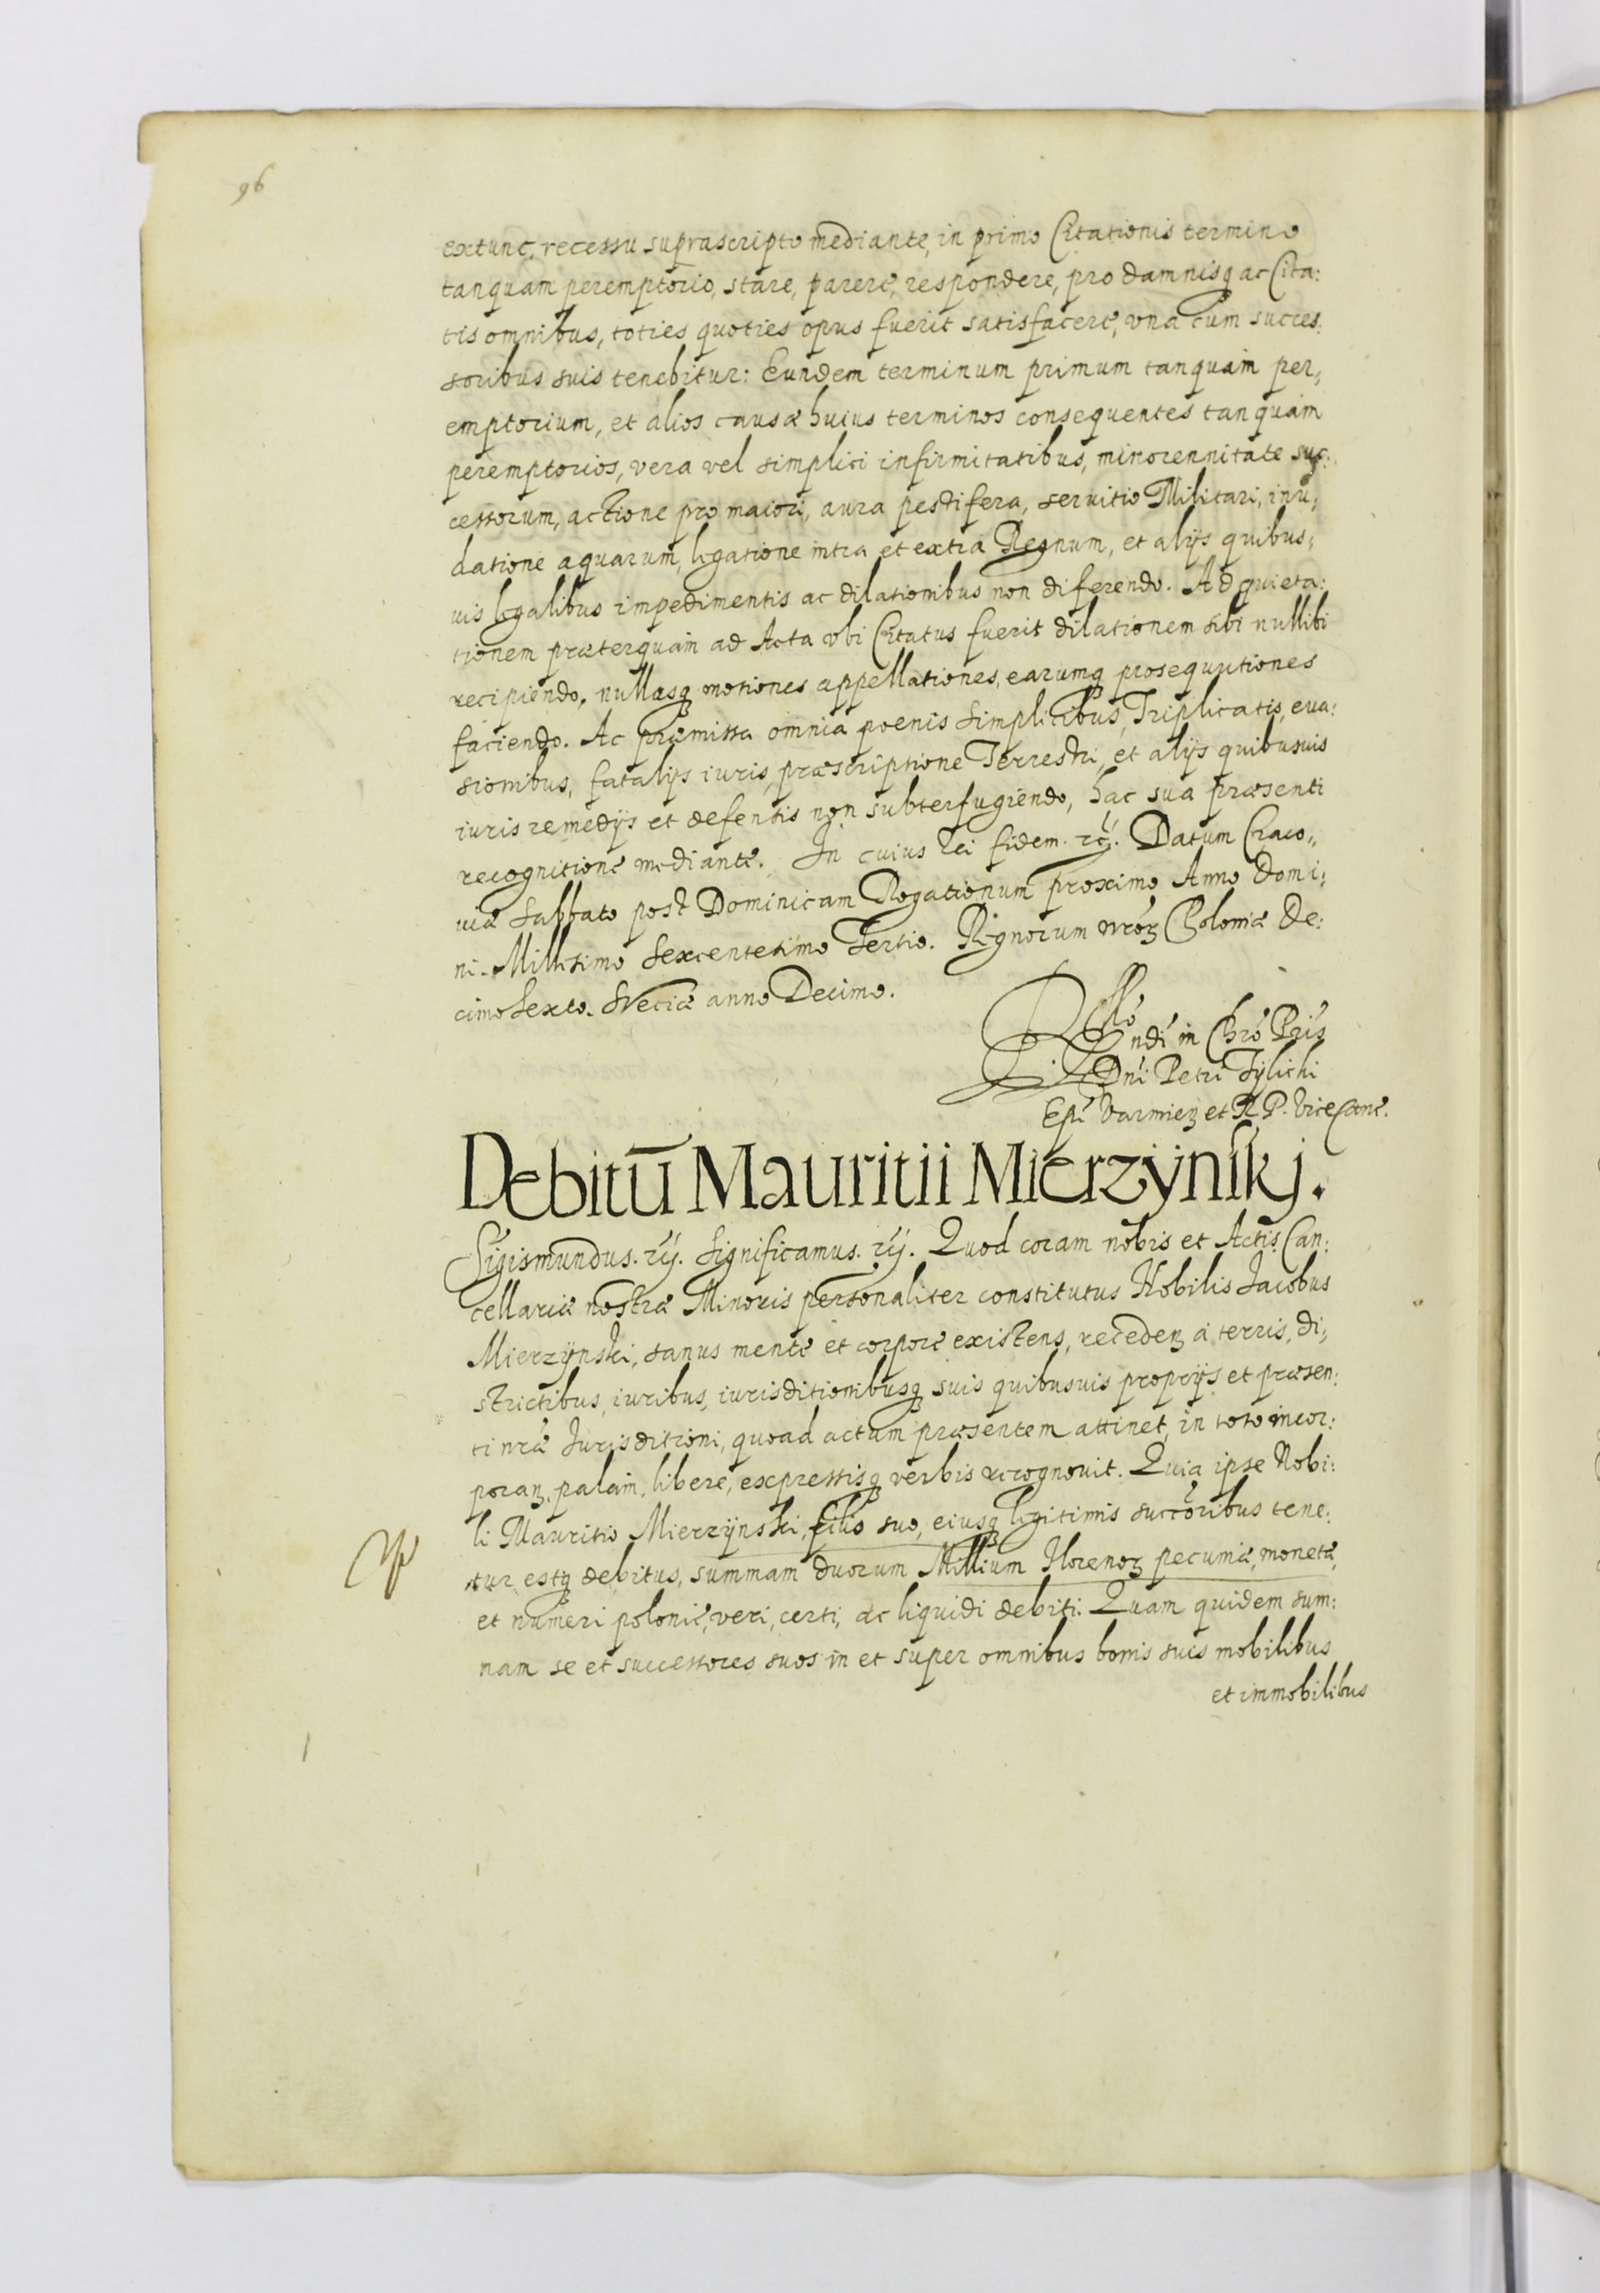 96
extunc, recessu suprascripto mediante, in primo Citationis termino
tanquam peremptorio, stare, parere, respondere, pro damnisq ac Cita:
tis omnibus, toties quoties opus fuerit satisfacere, vna cum succes:
soribus suis tenebitur: Eundem terminum primum tanquam per,
emptorium, et alios causæ huius terminos consequentes tanquam
peremptorios, vera vel simplici infirmitatibus, minorennitate suc:
cessorum, actione pro maiori, aura pestifera, seruitio Militari, inu,
datione aquarum, legatione intra et extra Regnum, et alijs quibus,
uis legalibus impedimentis ac dilationibus non diferendo. Ad quieta:
tionem præterquam ad Acta vbi Citatus fuerit dilationem sibi nullibi
recipiendo, nullasq motiones appellationes, earumq prosequutiones
faciendo. Ac præmissa omnia poenis simplicibus, Triplicatis, eua:
sionibus, fatalijs iuris, præscriptione Terrestri, et alijs quibusuis
iuris remedijs et defensis non subterfugiendo, hac sua præsenti
recognitione mediante. In cuius rei fidem. rc. Datum Craco,,
uiæ Sabbato post Dominicam Rogationum proximo Anno Domi:
ni. Millesimo Sexcentesimo Tertio. Regnorum nrorz Poloniæ De:
cimo Sexto. Sveciæ anno Decimo.
Rllo
ndi in Chro Pris
Dni Petri Tylichi
Epi Varmien et R. P. ViceCanc.
Debitū Mauritii Mierzÿnskj.
Sigismundus. rc. Significamus. rc. Quod coram nobis et Actis Can:
cellariæ nostræ Minoris personaliter constitutus Nobilis Jacobus
Mierzÿnski, sanus mente et corpore existens, recedenz à terris, di,
strictibus, iuribus, iurisditionibusq suis quibusuis proprijs et præsen:
ti nræ Jurisditioni, quoad actum præsentem attinet, in toto incor:
poranz, palam, libere, expressisq verbis recognouit. Quia ipse Nobi:
li Mauritio Mierzÿnski, filio suo, eiusq legitimis succoribus tene:
tur estq debitus, summam duorum Millium florenorz pecuniæ, monetæ,
et numeri polonic, veri, certi, ac liquidi debiti. Quam quidem sum:
nam se et successores suos in et super omnibus bonis suis mobilibus
et immobilibus